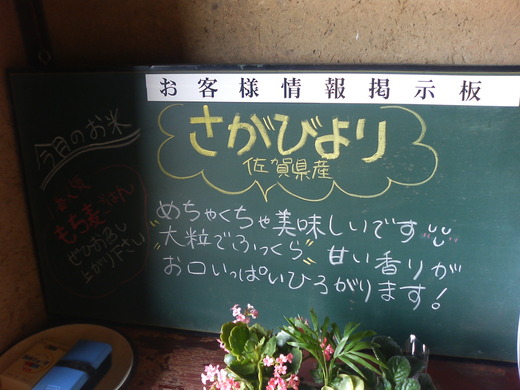 お客様情報掲示板
今月のお米
さがびより
佐賀県産
めちゃくちゃ美味しいです
"大粒でふっくら" 甘い香りが
お口いっぱいひろがります!
もち麦ごはん
ぜひお召し
上がり下さい